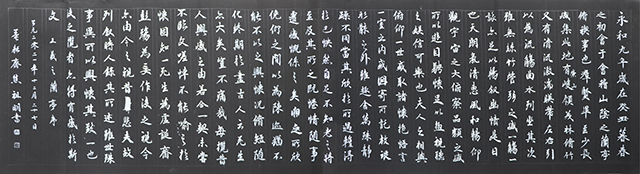 永和九年歲在癸丑暮春
之初會于會稽山陰之蘭亭
脩稧事也群賢畢至少長
咸集此地有崇山峻領茂林脩竹
又有清流激湍暎帶左右引
以為流觴曲水列坐其次
雖無絲竹管弦之盛一觴一
詠亦足以暢敘幽情是日
也天朗氣清惠風和暢仰
觀宇宙之大俯察品類之盛
所以遊目騁懷足以極視聽
之娛信可樂也夫人之相與
俯仰一世或取諸懷抱悟言
一室之內或因寄所託放浪
形骸之外雖趣舍萬殊靜
躁不同當其欣於所遇蹔得
於己怏然自足不知老之將
至及其所之既惓情隨事
遷感慨係之矣向之所欣
俛仰之間以為陳迹猶不
能不以之興懷況脩短隨
化終期於盡古人云死生
亦大矣豈不痛哉每攬昔
人興感之由若合一契未嘗
不臨文嗟悼不能喻之於
懷固知一死生為虛誕齊
彭殤為妄作後之視今
亦由今之視昔悲夫故
列敘時人錄其所述雖世殊
事異所以興懷其致一也
後之攬者亦將有感於斯
文 王羲之蘭亭序
祖明書